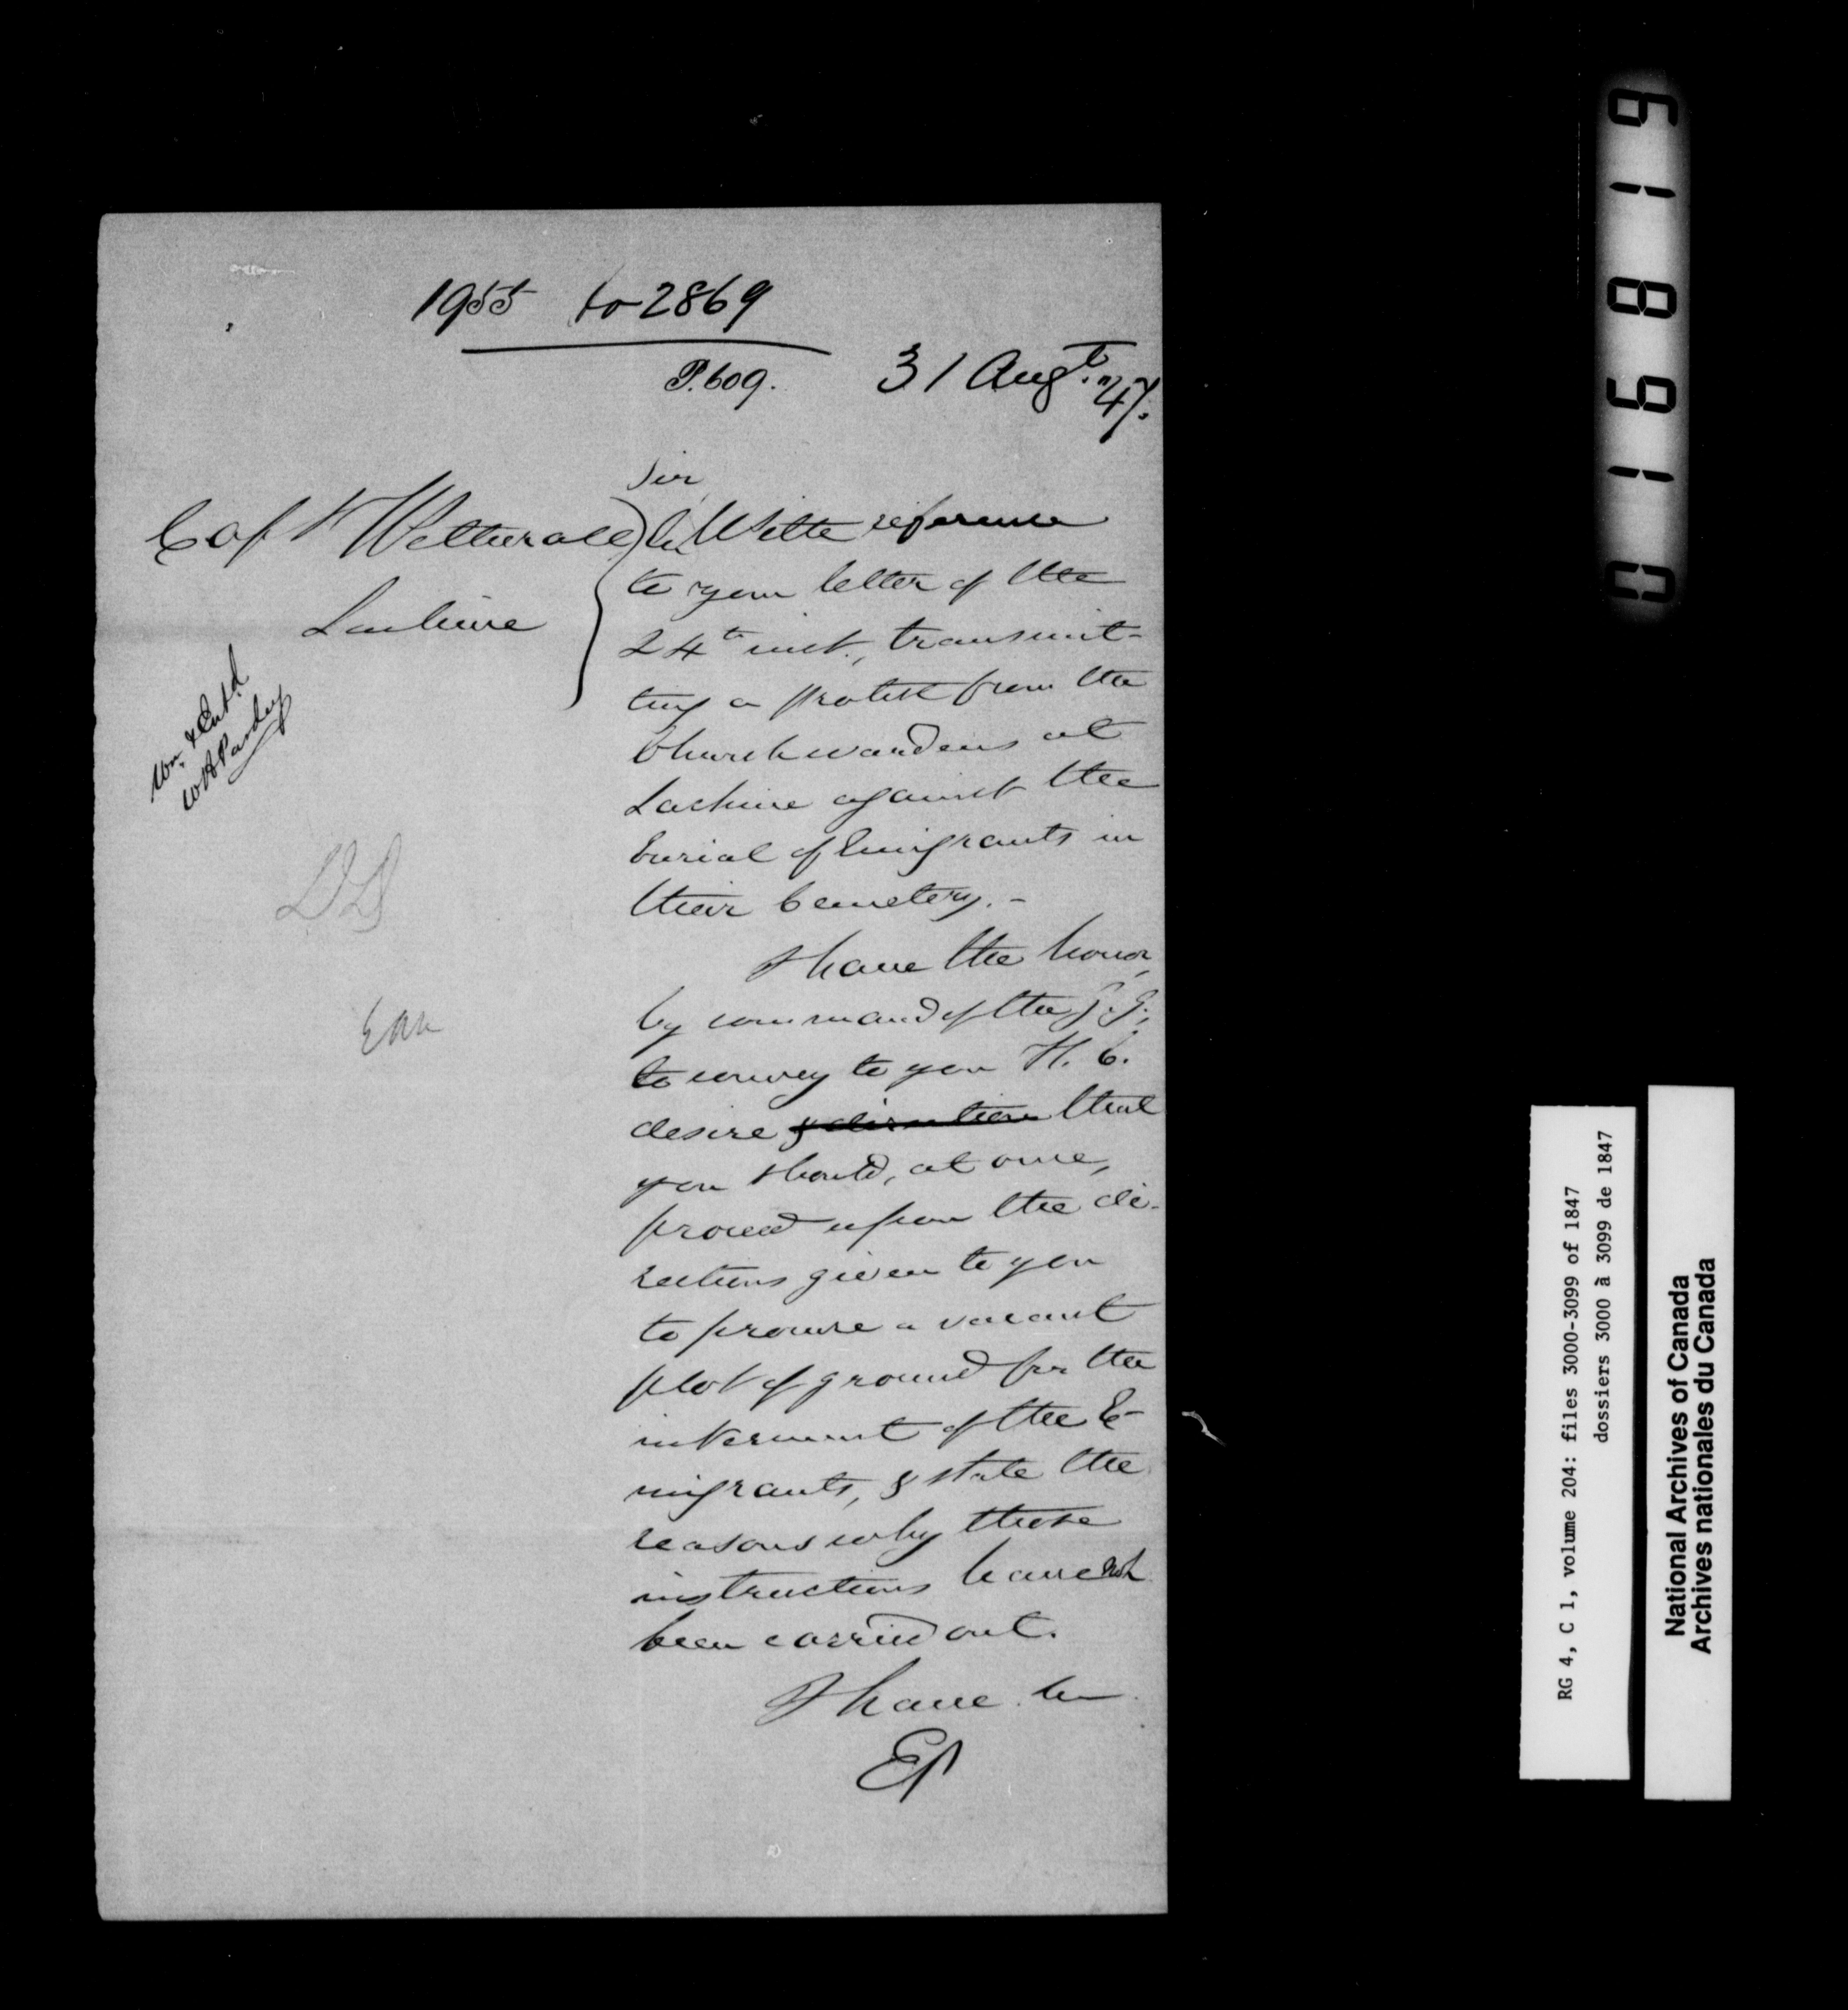 1955 to 2869
P. 609.
31 Augt. "47.
Sir,
Capt Wetherall
Lachine
With reference
to your letter of the
24th inst., transmit-
ting a protest from the
Churchwardens at
Lachine against the
burial of Emigrants in
their Cemetery. -
I have the honor,
by command of the G. G.,
to convey to you H. E.
desire & direction that
you should, at once,
proceed upon the di-
rections given to you
to procure a vacant
plot of ground for the
interment of the E-
migrants, & state the
reasons why these
instructions have not
been carried out.
I have
EP
Wn. & Entd.
WH Pardey
016819
RG 4, C 1, volume 204: files 3000-3099 of 1847
dossiers 3000 à 3099 de 1847
National Archives of Canada
Archives nationales du Canada